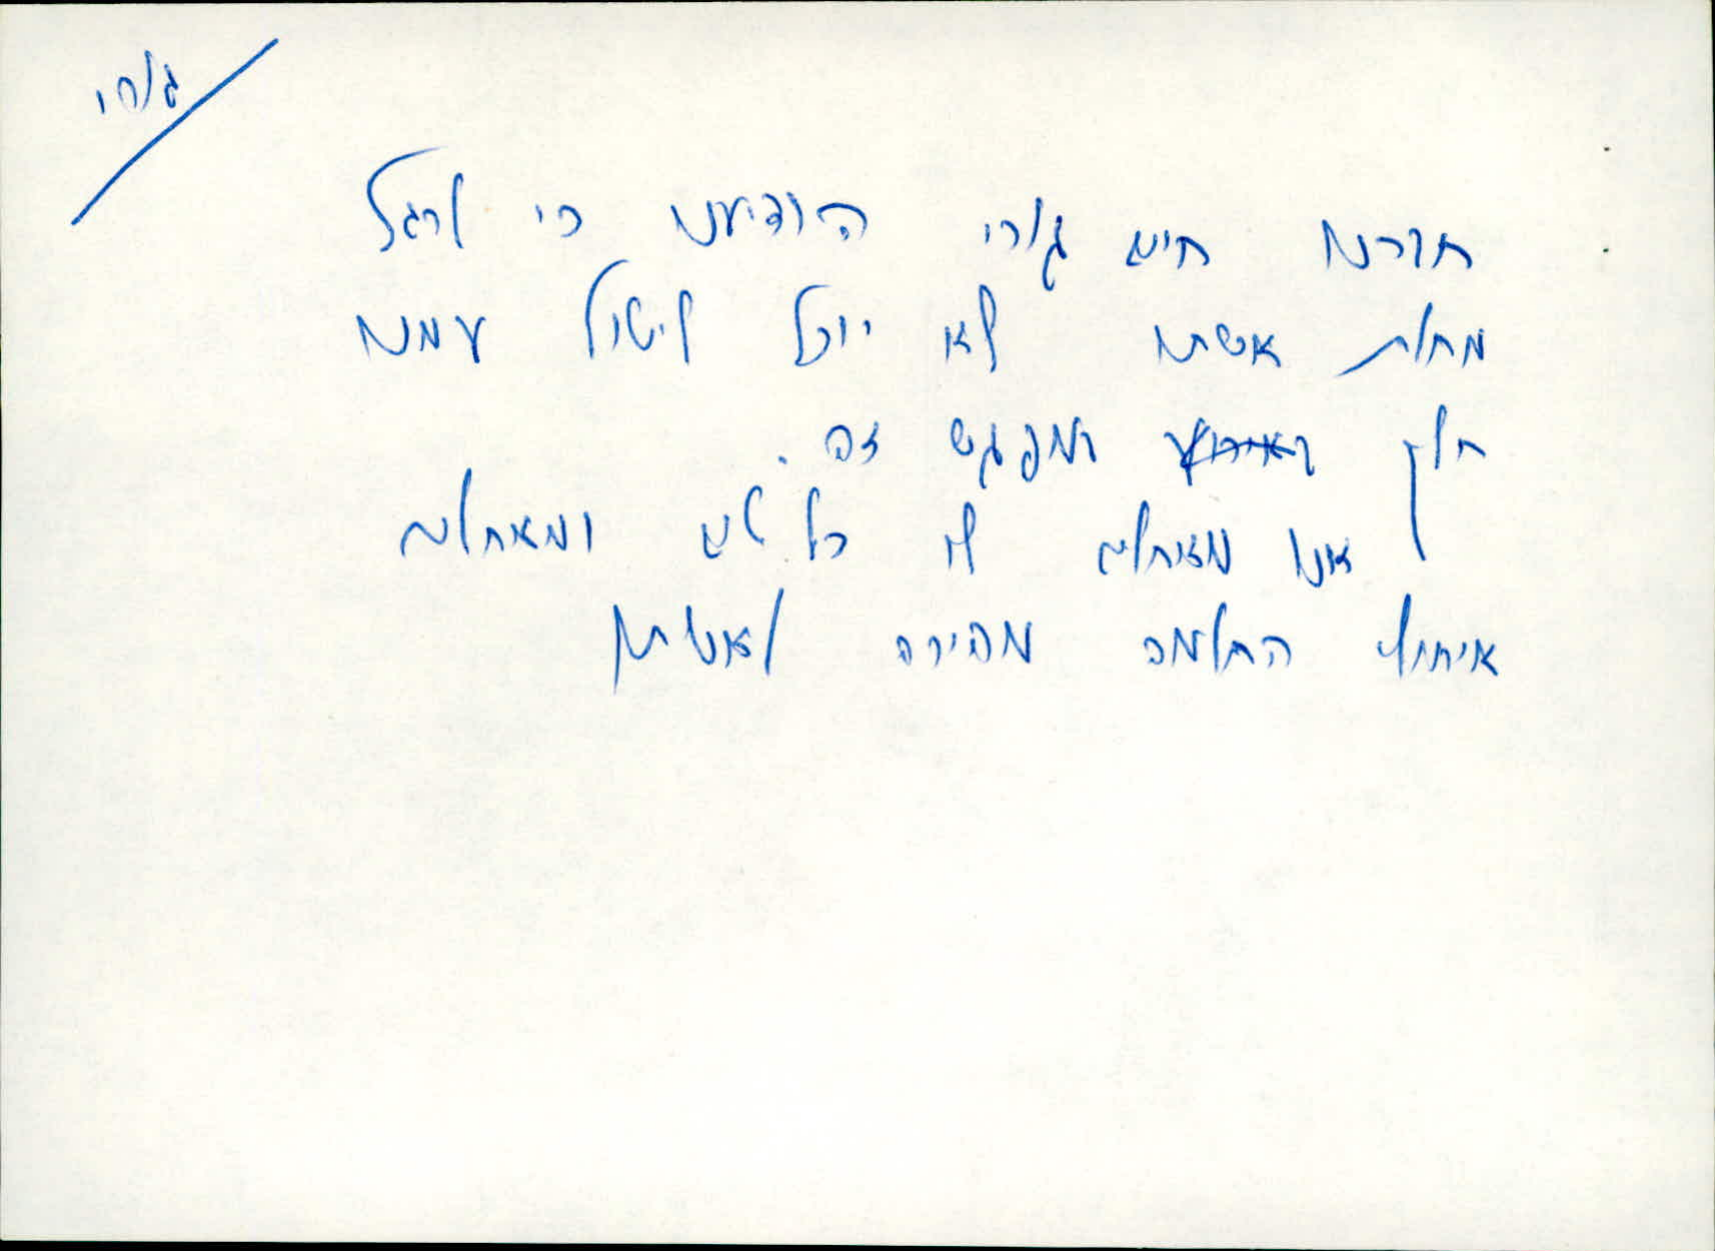 גורי
חברנו חיים גורי הודיענו כי לרגל
מחלת אשתו לא יוכל ליטול עמנו
חלק באירוע במפגש זה.
אנו מאחלים לו כל טוב ומאחלים
איחולי החלמה מהירה לאשתו